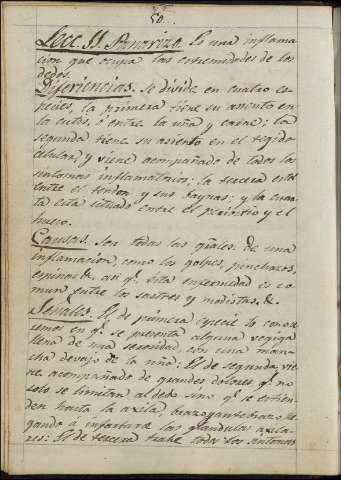 50..
Lecc. 11. Panarizo. Es una inflama
cion que ocupa las estremidades de los
dedos.
Diferiencias. Se divide en cuatro es
pecies, la primera tiene su asiento en
la cutis, ó entre la uña y carne; la
segunda tiene su asiento en el tegido
célular, y viene acompañado de todos los
sintomas inflamatorios; la tercera está
entre el tendon y sus baynas; y la cuar
ta esta situado entre el periostio y el
hueso.
Causas. Son todas las grâles. de una
inflamacion como los golpes, pinchazos,
espinas &. asi q.e esta enfermedad es co
mun entre los sastres y modistas, &.
Señales. El de primera especie lo conoce
remos en q.e se presenta alguna vegiga
llena de una serosidad con una man
cha devajo de la uña: El de segunda, vie
ne acompañado de grandes dolores q.e no
solo se limitan al dedo sino q.e se estien
den hasta la axila, brazo, antebrazo, lle
gando á infartarse las glandulas axila
res: El de tercera trahe todos los sintomas